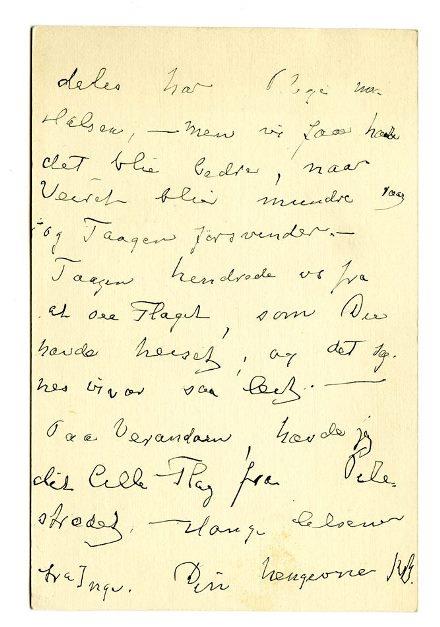 deles har
Halsen, — men vi faa haabe
det blir bedre, naar
Veiret blir mindre raag
og Taagen forsvinder. —
Taagen hendrede os fra
at see Flaget, som Du
havde heiset, og det sy-
nes vi var saa leit. —
Paa Verandaen, havde jeg
det lille Flag fra Pile-
strædet. — Mange hilsener
fra Inga. Din hengivne